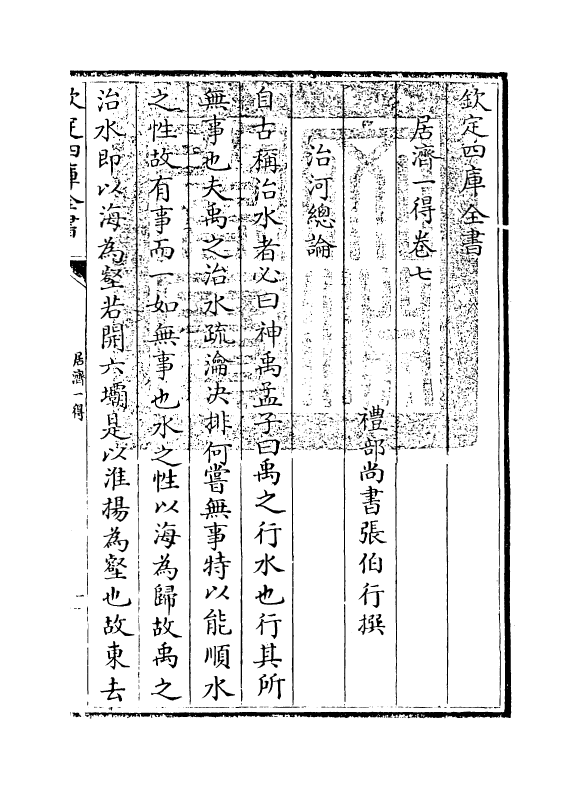 欽定四庫全書
居濟一得卷七
禮部尚書張伯行撰
治河總論
自古稱治水者必曰神禹孟子曰禹之行水也行其所
無事也夫禹之治水疏瀹决排何嘗無事特以能順水
之性故有事而一如無事也水之性以海為歸故禹之
治水即以海為壑若開六壩是以淮揚為壑也故東去
欽定四庫全書
居濟一得
一